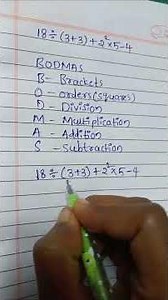 18÷(3+3)+2²×5-4
BODMAS
B- Brackets
O- orders(squares)
D- Division
M- Multiplication
A- Addition
S- Subtraction
18÷(3+3)+2²×5-4